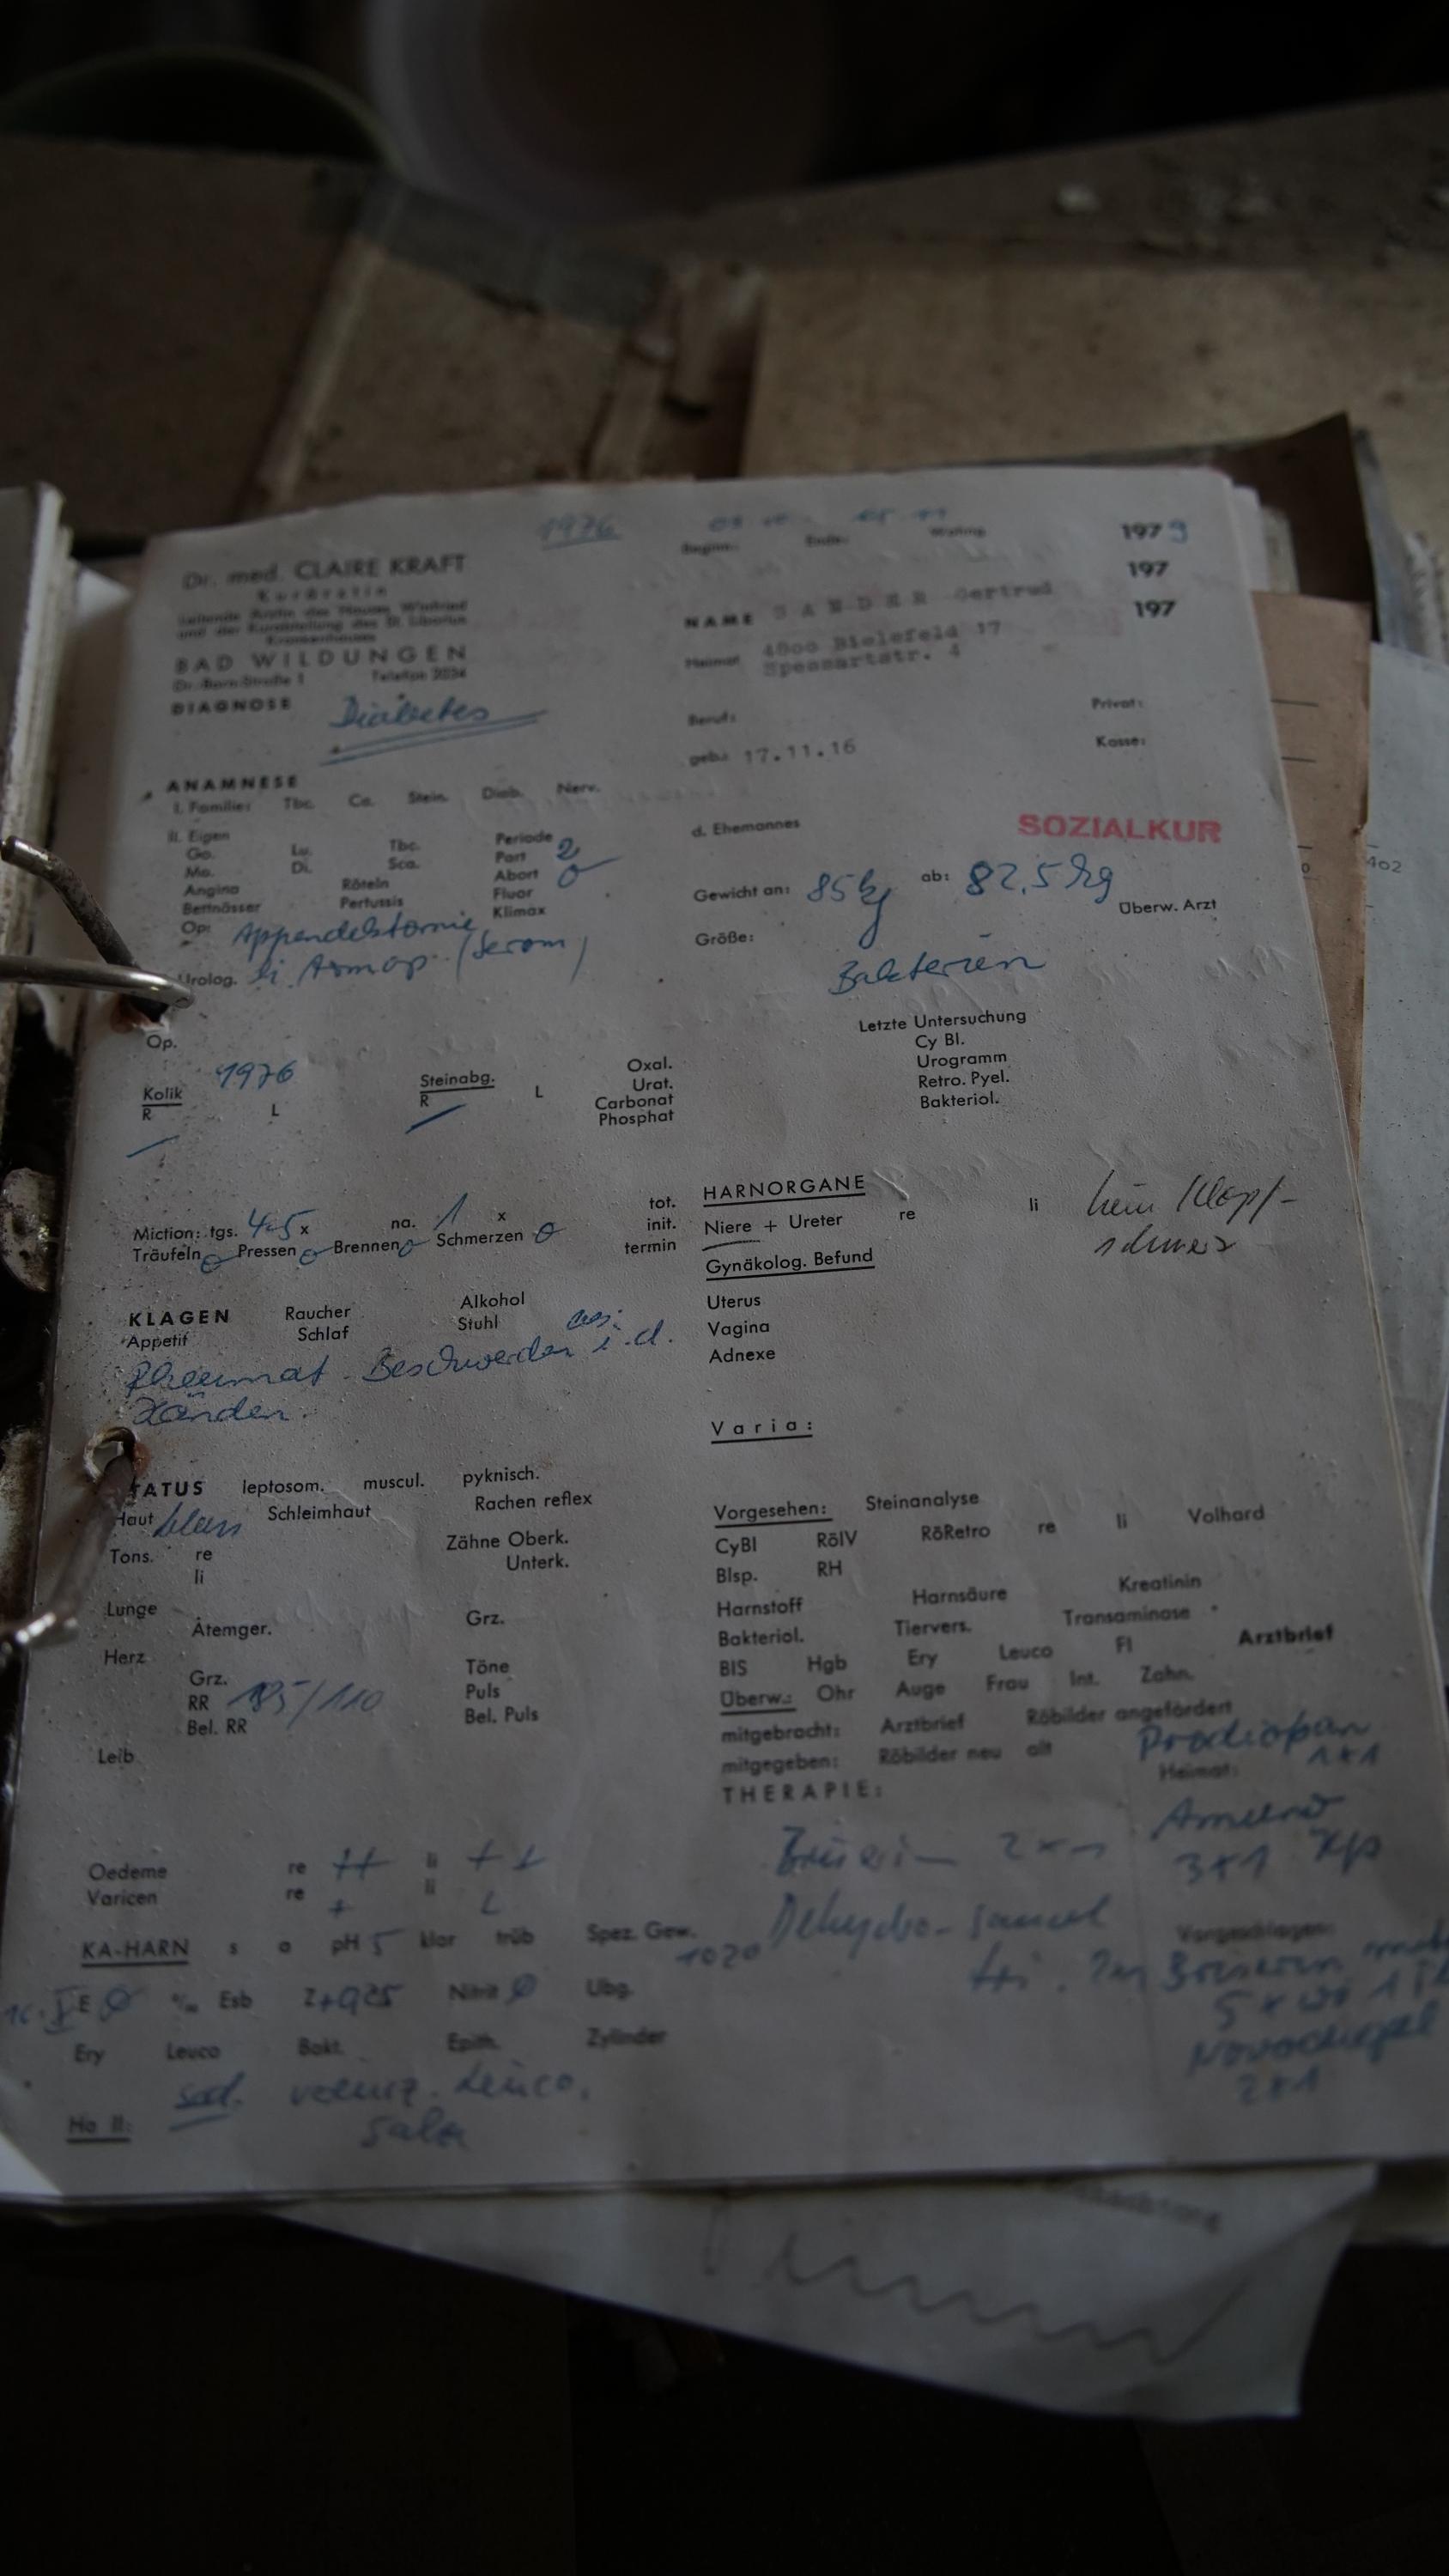 1976
Beginn: Ende: 197 9
197
197
Dr. med. CLAIRE KRAFT
Kurärztin
Leitende Ärztin des Hauses Winfried
und der Kurabteilung des St. Liborius
Krankenhauses
BAD WILDUNGEN
Dr.-Born-Straße 1 Telefon 2034
NAME SANDER Gertrud
Heimat 4800 Bielefeld 17
Spessartstr. 4
DIAGNOSE Diabetes
Beruf: Privat:
geb.: 17.11.16 Kasse:
ANAMNESE
I. Familie: Tbc. Ca. Stein. Diab. Nerv.
II. Eigen Periode
Go. Lu. Tbc. Part 2
Ma. Di. Sca. Abort
Angina Röteln Fluor
Bettnässer Pertussis Klimax
Op:
Urolog. li
d. Ehemannes
SOZIALKUR
Gewicht an: 85 kg ab: 82,5 kg
Überw. Arzt
Größe:
Bakterien
Letzte Untersuchung
Cy Bl.
Urogramm
Retro. Pyel.
Bakteriol.
Op.
1976
Kolik Steinabg. Oxal.
R L R L Urat.
Carbonat
Phosphat
Miction: tgs. 4-5 x na. 1 x tot.
init.
Träufeln Pressen Brennen Schmerzen termin
HARNORGANE
Niere + Ureter re li kein Klopf-
schmerz
Gynäkolog. Befund
Uterus
Vagina
Adnexe
KLAGEN Raucher Alkohol
Appetit Schlaf Stuhl
Rheumat. Beschwerden i. d.
Händen.
Varia:
TATUS leptosom. muscul. pyknisch.
Haut blass Schleimhaut Rachen reflex
Tons. re Zähne Oberk.
li Unterk.
Lunge Atemger. Grz.
Herz Grz. Töne
RR 185/110 Puls
Bel. RR Bel. Puls
Leib
Vorgesehen: Steinanalyse
CyBl RöIV RöRetro re li Volhard
Blsp. RH
Harnstoff Harnsäure Kreatinin
Bakteriol. Tiervers. Transaminase
BIS Hgb Ery Leuco Fl Arztbrief
Überw.: Ohr Auge Frau Int. Zahn.
mitgebracht: Arztbrief Röbilder angefordert
mitgegeben: Röbilder neu alt
1x1
THERAPIE: Heimat:
3x1
Dehydro-
Vorgeschlagen:
2x1
Oedeme re ++ li ++
Varicen re + li
KA-HARN s a pH 5 klar trüb Spez. Gew.
1020
E Ø ‰ Esb Z Nitrit Ø Ubg.
Ery Leuco Bakt. Epith. Zylinder
sed. vereinz. Leuco.
Salze
Ha II: